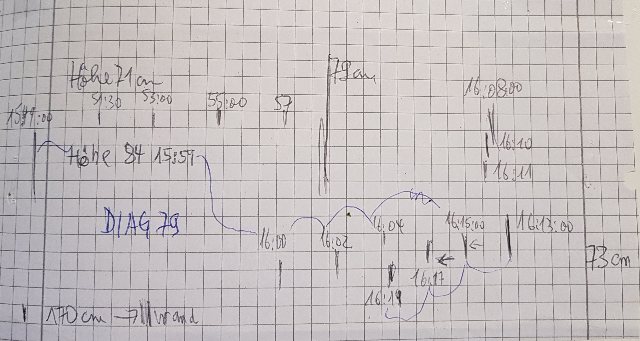 Höhe 71 cm
79 cm
51:30 53:00 55:00 57
16:08:00
16:10
Höhe 84 15:57
16:11
DIAG 79
16:00 16:02 16:04 16:15:00 16:13:00
73 cm
16:17
16:19
170 cm → Wand